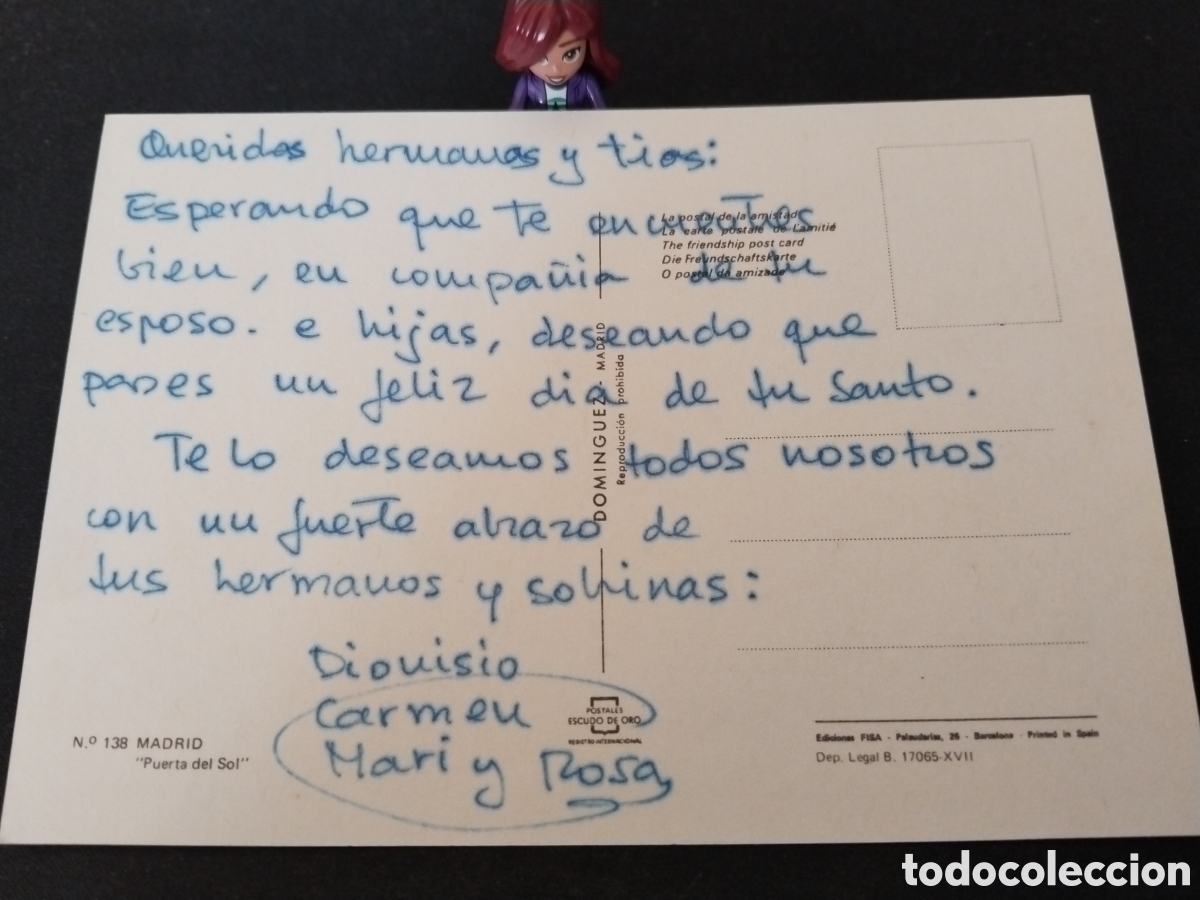 Queridos hermanos y tios:
Esperando que te encuentres
bien, en compañia de tu
esposo. e hijas, deseando que
pases un feliz dia de tu Santo.
Te lo deseamos todos nosotros
con un fuerte abrazo de
tus hermanos y sobinas:
Dionisio
Carmen
Mari y Rosa
La postal de la amistad
La carte postale de L'amitié
The friendship post card
Die Freundschaftskarte
O postal da amizade
DOMINGUEZ - MADRID
Reproducción prohibida
POSTALES
ESCUDO DE ORO
REGISTRO INTERNACIONAL
N.º 138 MADRID
"Puerta del Sol"
Ediciones FISA - Palaudarias, 26 - Barcelona - Printed in Spain
Dep. Legal B. 17065-XVII
todocoleccion